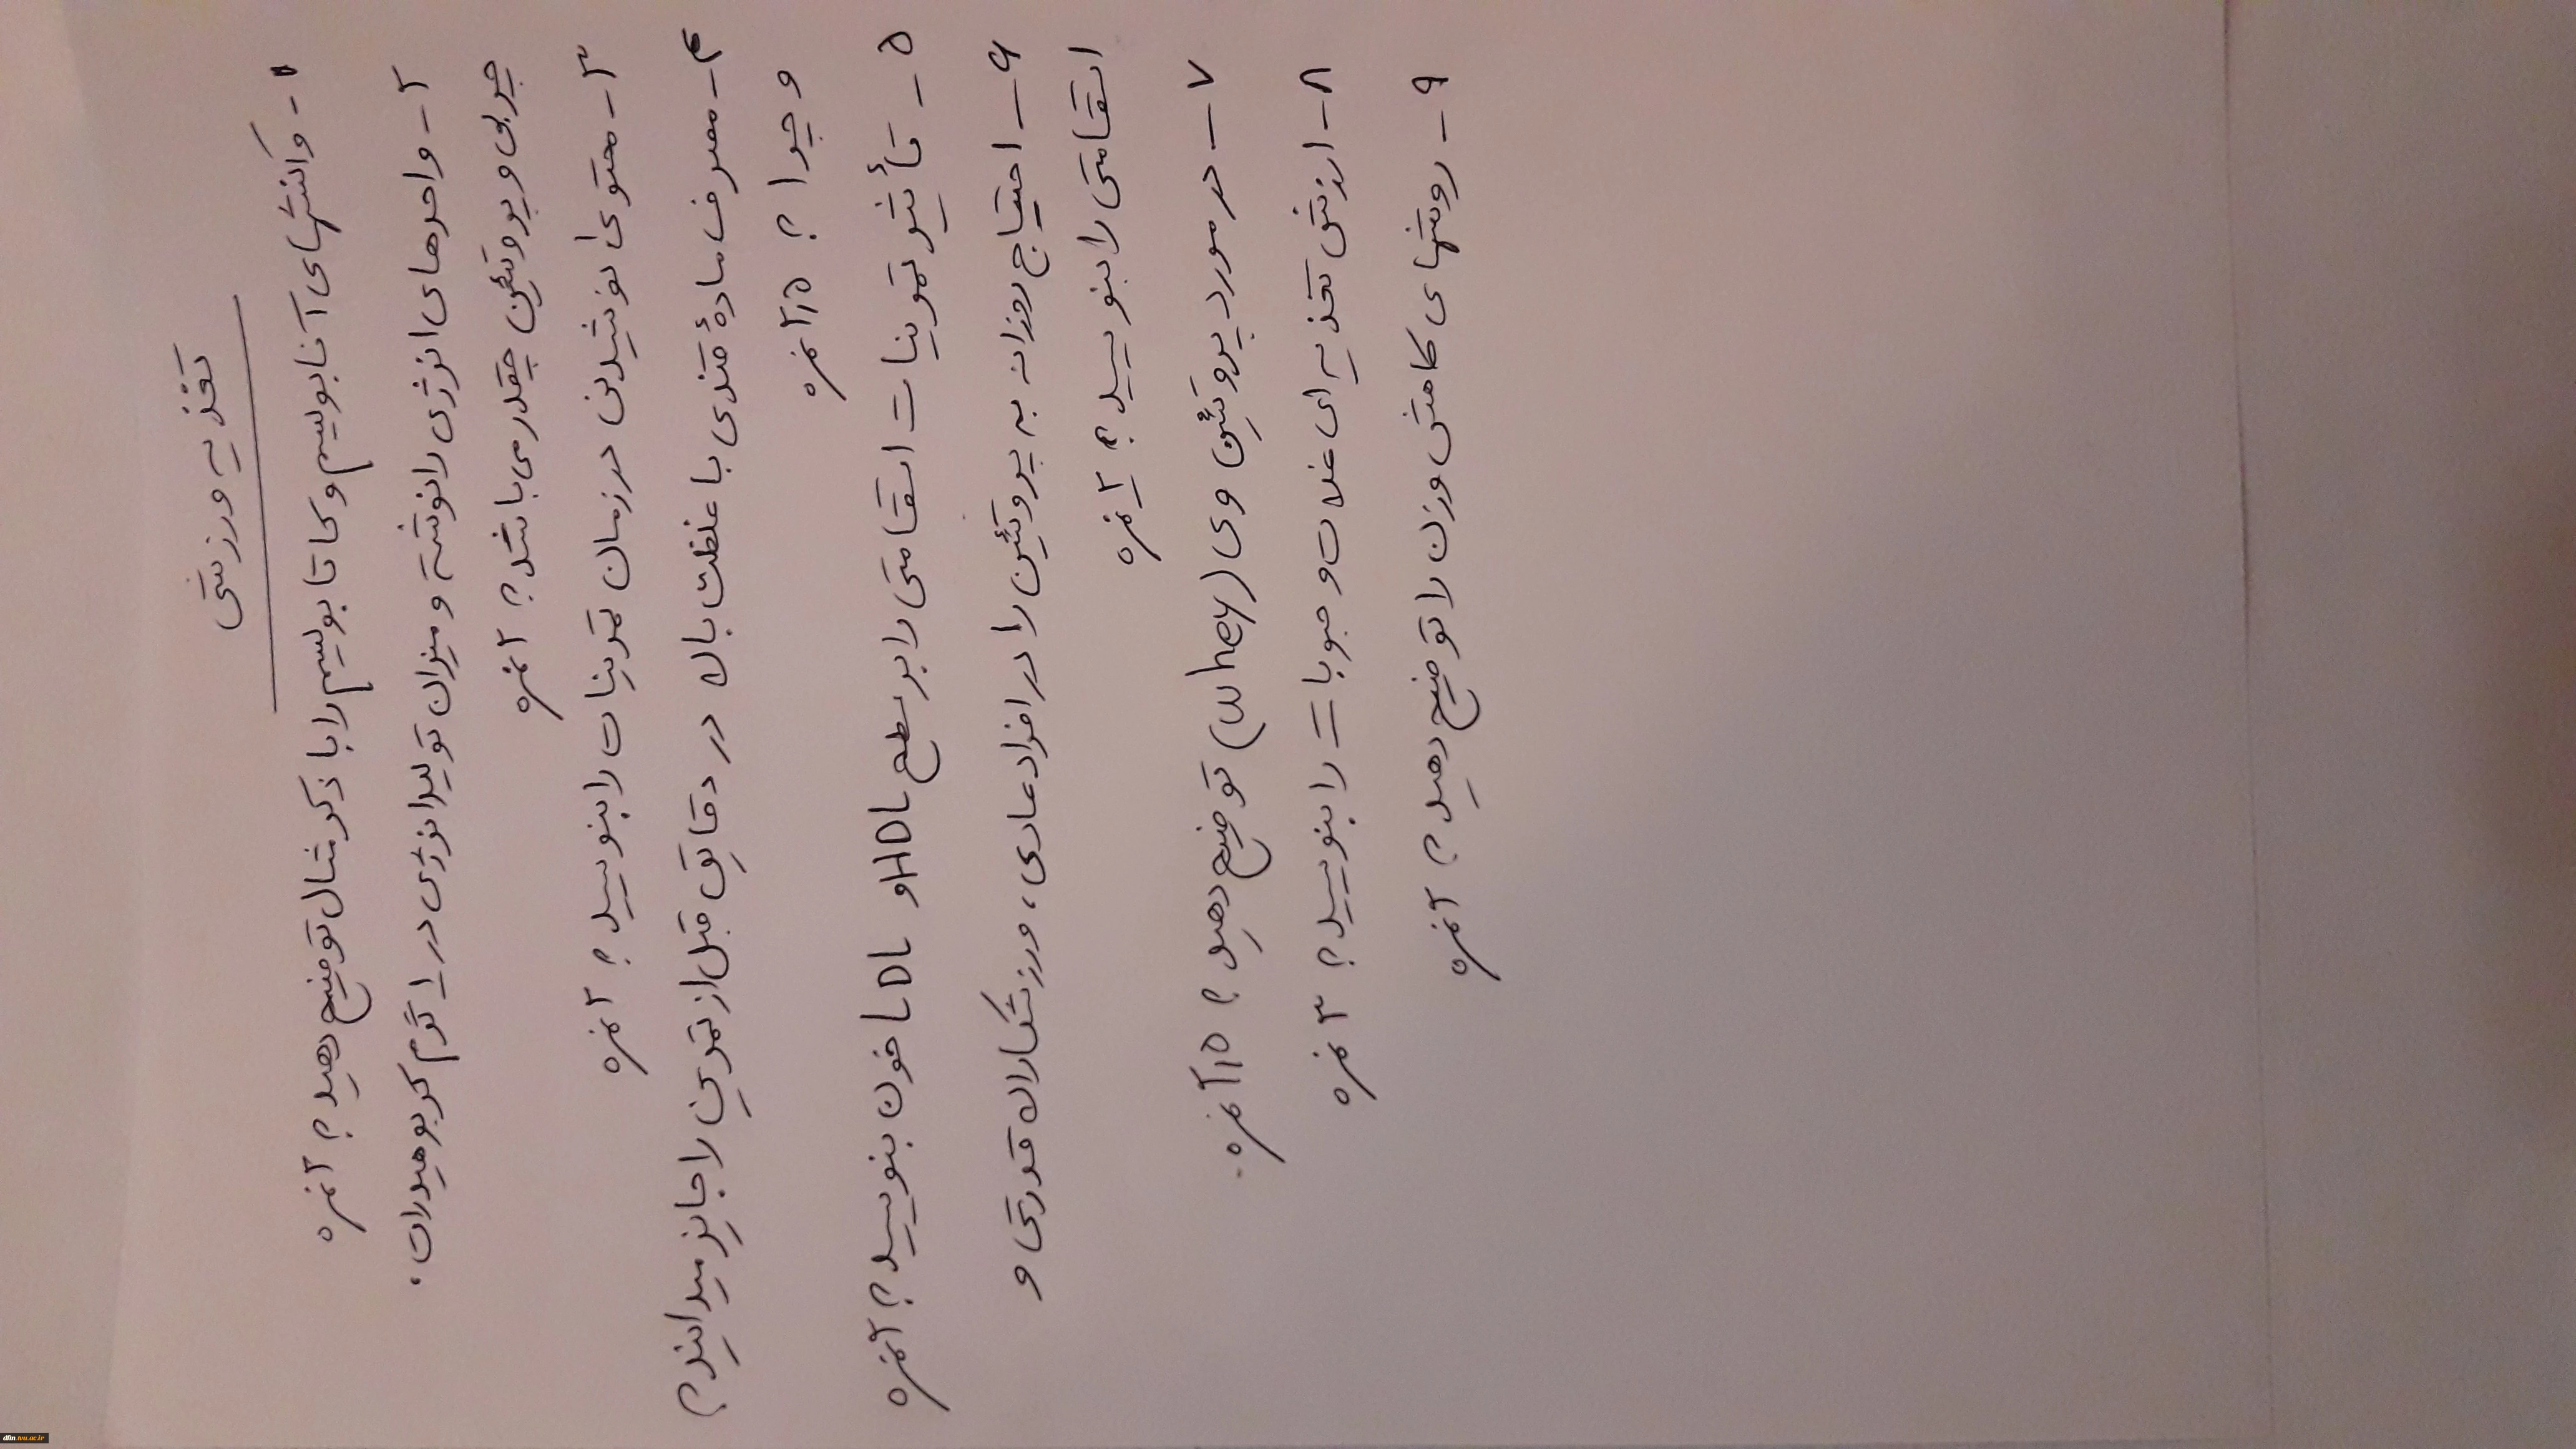 تغذیه ورزشی
۱- واکنشهای آنابولیسم و کاتابولیسم را با ذکر مثال توضیح دهید؟ ۲ نمره
۲- واحدهای انرژی را نوشته و میزان تولید انرژی در ۱ گرم کربوهیدرات،
چربی و پروتئین چقدر می باشد؟ ۲ نمره
۳- محتوی نوشیدنی در زمان تمرینات را بنویسید؟ ۲ نمره
۴- مصرف مادهٔ قندی با غلظت بالا در دقایق قبل از تمرین را جایز میدانید؟
و چرا؟ ۲/۱۵ نمره
۵- تأثیر تمرینات استقامتی را بر سطح HDL و LDL خون بنویسید؟ ۲ نمره
۶- احتیاج روزانه به پروتئین را در افراد عادی، ورزشکاران قدرتی و
استقامتی را بنویسید؟ ۲ نمره
۷- در مورد پروتئین وی (whey) توضیح دهید؟ ۲/۱۵ نمره
۸- ارزش تغذیه ای غلات و حبوبات را بنویسید؟ ۳ نمره
۹- روشهای کاهش وزن را توضیح دهید؟ ۲ نمره
dfm.tvu.ac.ir